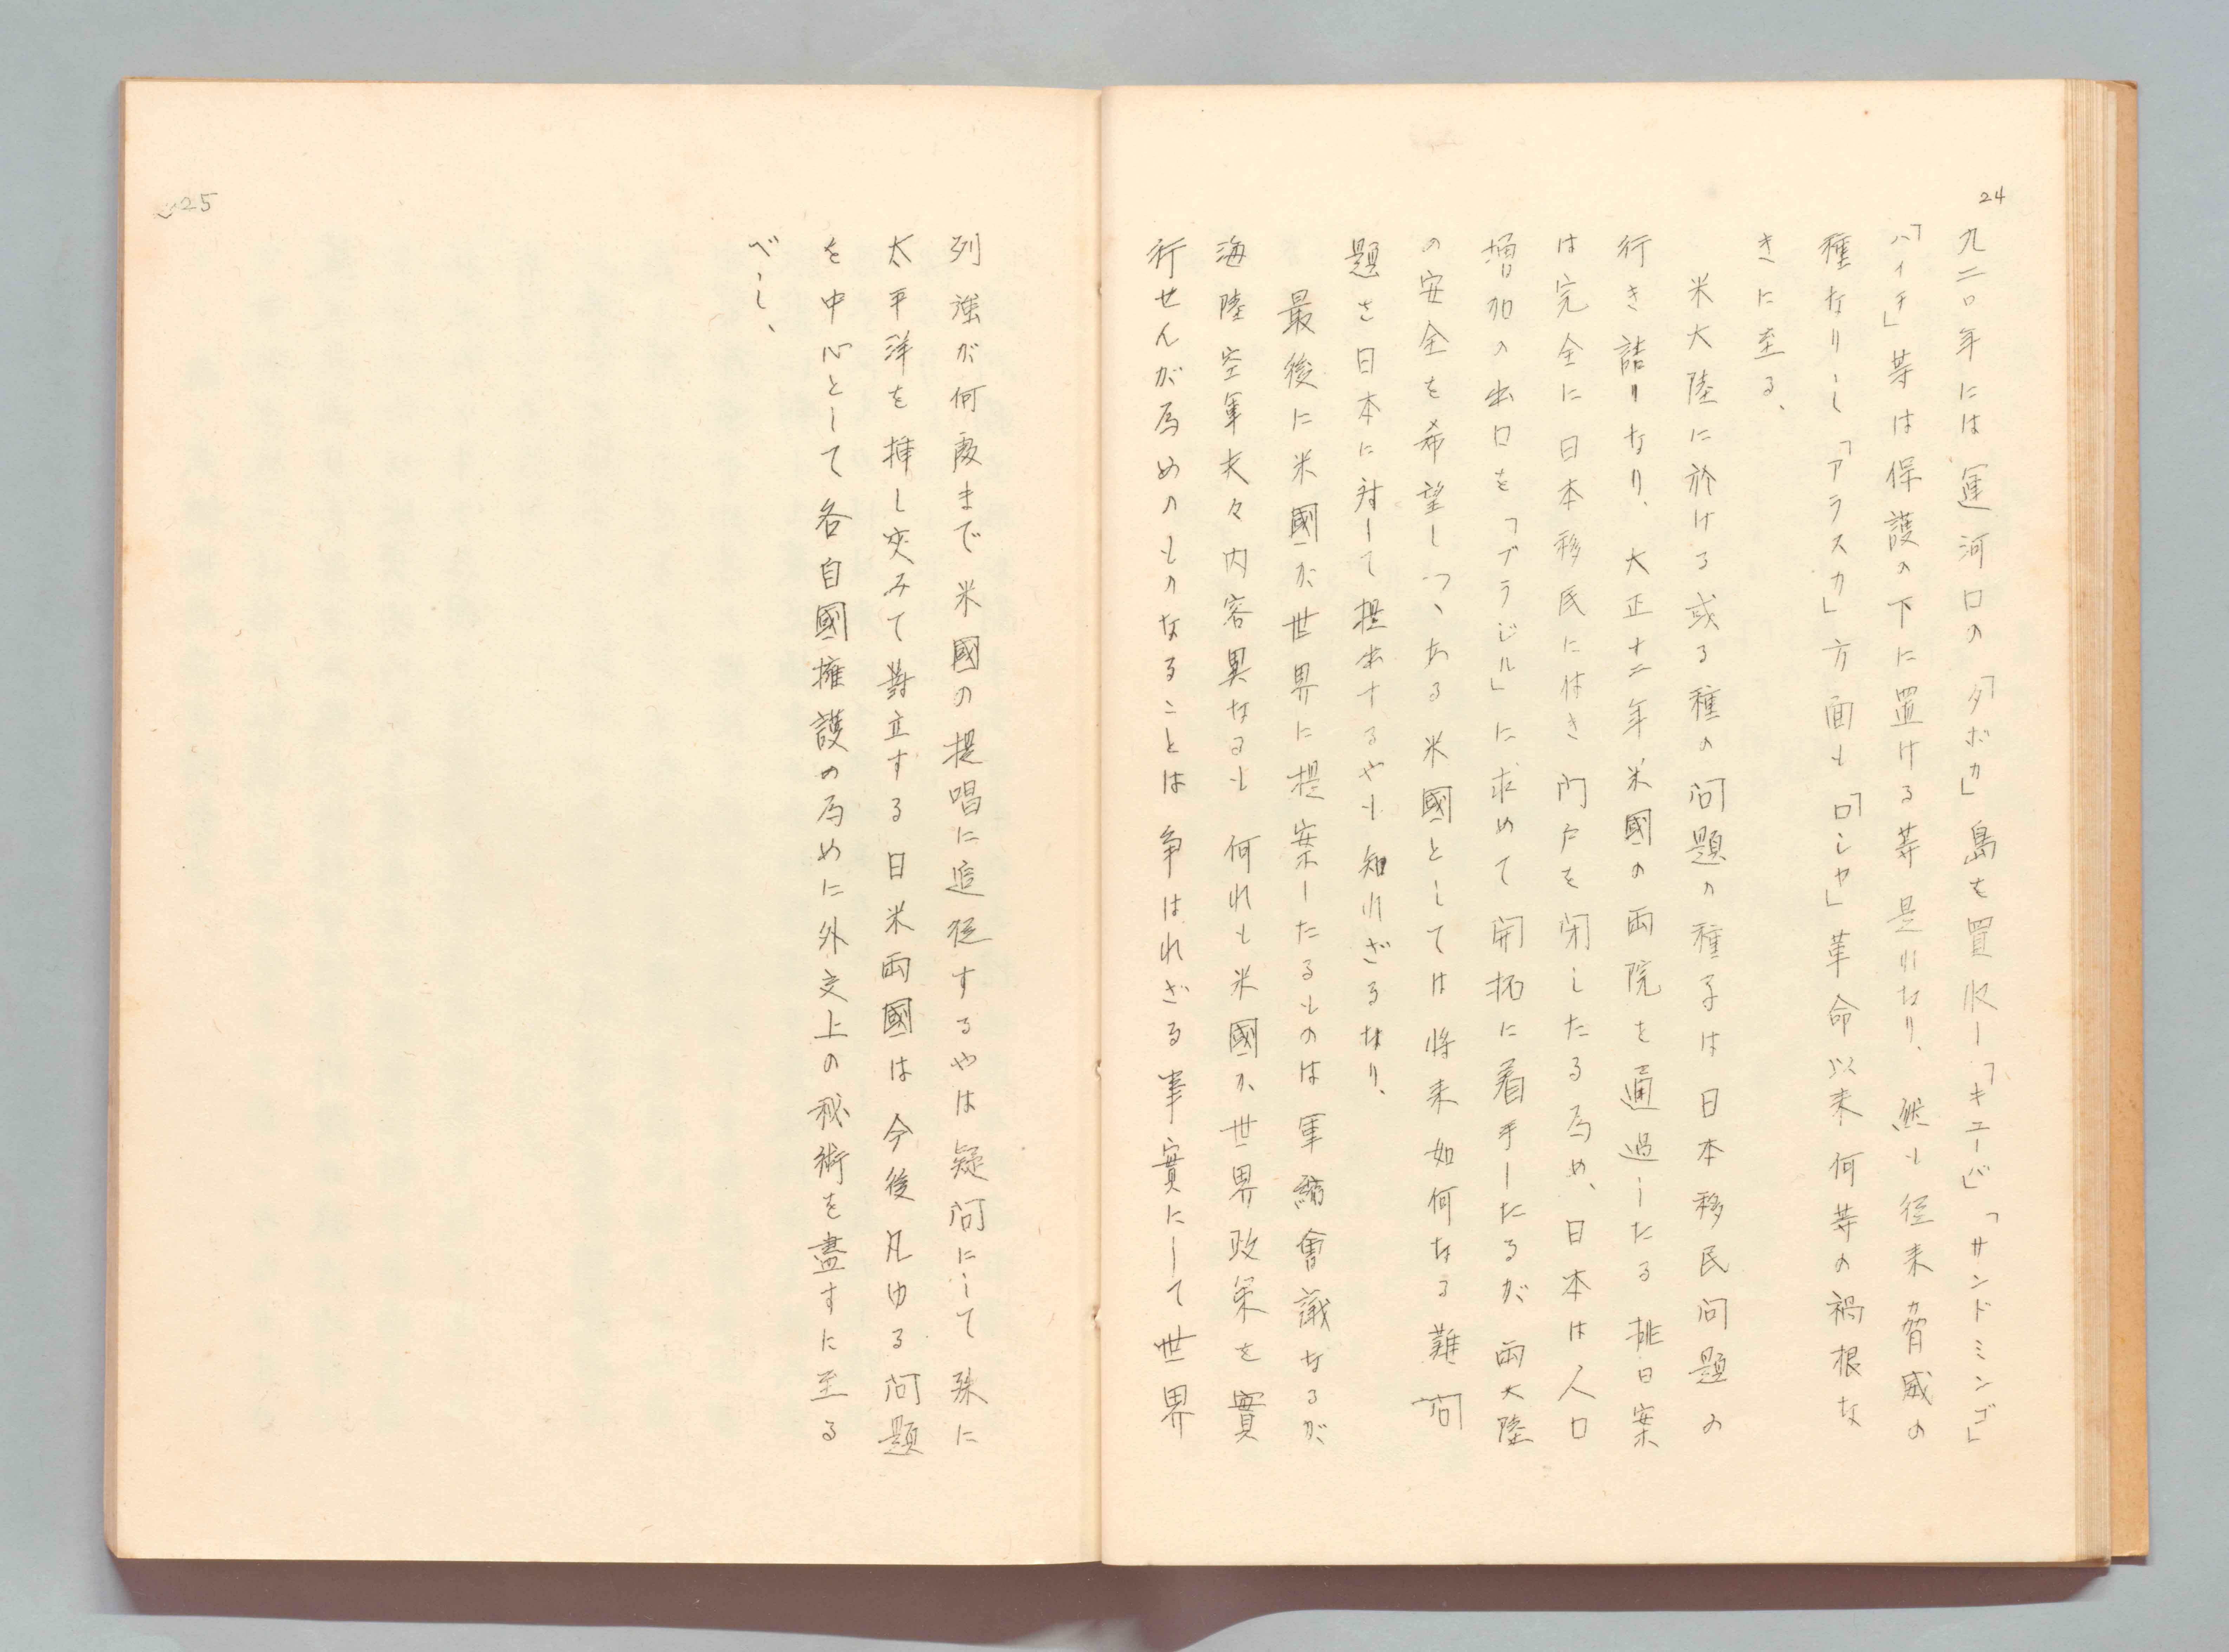 24
九二〇年には運河口の「タボカ」島を買収し「キューバ」「サンドミンゴ」
「ハイチ」等は保護の下に置ける等是れなり、然も従来脅威の
種なりし「アラスカ」方面も「ロシヤ」革命以来何等の禍根な
きに至る、
米大陸に於ける或る種の问題の種子は日本移民问題の
行き詰りなり、大正十三年米國の両院を通過したる排日案
は完全に日本移民に付き门戸を閉したる為め、日本は人口
増加の出口を「ブラジル」に求めて開拓に着手したるが両大陸
の安全を希望しつゝある米國としては将来如何なる難问
題を日本に対して提出するやも知れざるなり、
最後に米國が世界に提案したるものは軍縮會議なるが
海陸空軍夫々内容異なるも何れも米國が世界政策を實
行せんが為めのものなることは争はれざる事實にして世界
列強が何處まで米國の提唱に追従するやは疑问にして殊に
太平洋を挿し夾みて對立する日米両國は今後凡ゆる问題
を中心として各自國擁護の為めに外交上の秘術を盡すに至る
べし、
25